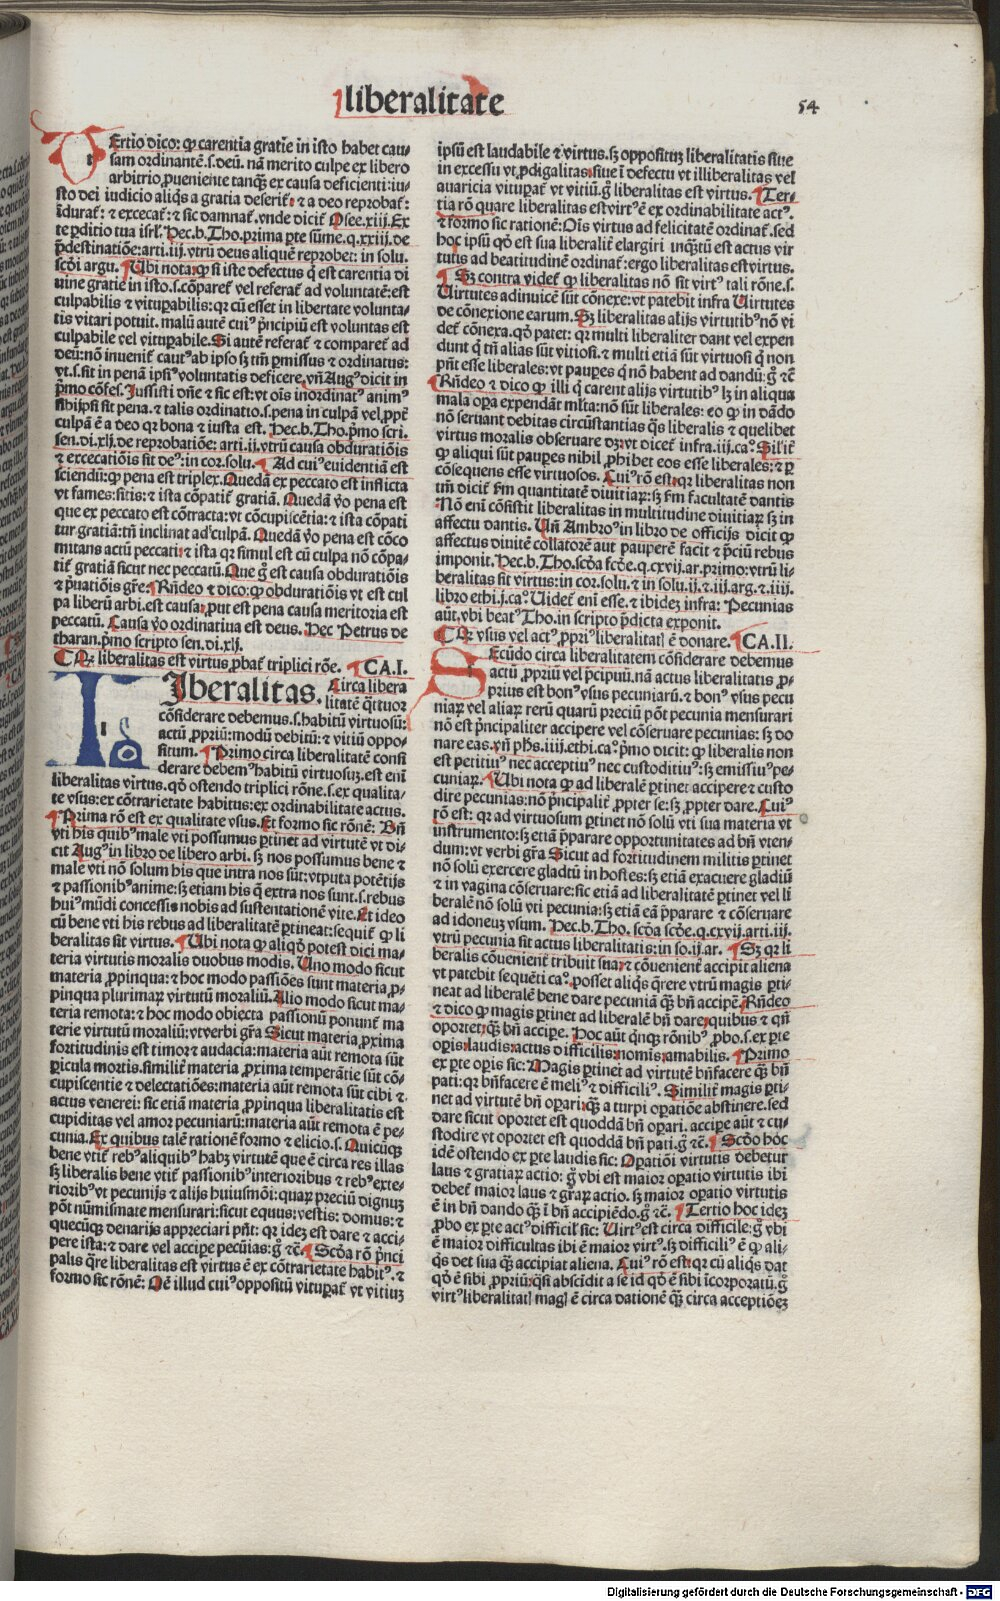 liberalitate
54
Ertio dico: ꝙ carentia gratie in isto habet cau-
sam ordinantē.s.deū. nā merito culpe ex libero
arbitrio ꝓueniente tanqȝ ex causa deficienti: iu-
sto dei iudicio aliq̄s a gratia deserit᷑: ⁊ a deo reprobat᷑:
īdurat᷑: ⁊ excecat᷑: ⁊ sic damnat᷑. vnde dicit᷑ Osee.xiij. Ex
te perditio tua isrl̄. Hec.b.Tho.prima ꝑte sūme.q.xxiij.de
p̄destinatiōe: arti.iij.vtrū deus aliquē reprobet: in solu.
scd̓i argu. Ubi nota: ꝙ si iste defectus q̄ est carentia di
uine gratie in isto.s.cōparet᷑ vel referat᷑ ad voluntatē: est
culpabilis ⁊ vituꝑabilis: qꝛ cū esset in libertate volunta-
tis vitari potuit. malū autē cuiꝰ p̄ncipiū est voluntas est
culpabile vel vituꝑabile. Si autē referat᷑ ⁊ comparet᷑ ad
deū: nō inuenit᷑ cautꝰ ab ipso sȝ tm̄ ꝑmissus ⁊ ordinatus:
vt.s.sit in penā ipsiꝰ voluntatis deficere. vn̄ Augꝰ dicit in
p̄mo cōfes. Jussisti dn̄e ⁊ sic est: vt oīs inordinatꝰ animꝰ
sibijpsi sit pena. ⁊ talis ordinatio.s.pena in culpā vel ꝓpt᷑
culpā ē a deo qꝛ bona ⁊ iusta est. Hec.b.Tho.p̄mo scri.
sen.di.xlj. de reprobatiōe: arti.ij.vtrū causa obduratiōis
⁊ excecatiōis sit deꝰ: in cor.solu. Ad cuiꝰ euidentiā est
sciendū: ꝙ pena est triplex. Quedā ex peccato est inflicta
vt fames: sitis: ⁊ ista cōpatit᷑ gratiā. Quedā v̓o pena est
que ex peccato est cōtracta: vt cōcupiscētia: ⁊ ista cōpati
tur gratiā: tn̄ inclinat ad culpā. Quedā v̓o pena est cōco
mitans actū peccati: ⁊ ista qꝛ simul est cū culpa nō cōpa-
tit᷑ gratiā sicut nec peccatū. Que g̊ est causa obduratiōis
⁊ p̄uatiōis gr̄e: Rn̄deo ⁊ dico: ꝙ obduratiōis vt est cul
pa liberū arbi.est causa: ꝓut est pena causa meritoria est
peccatū. Causa v̓o ordinatiua est deus. Hec Petrus de
tharan.p̄mo scripto sen.di.xlj.
Qꝛ liberalitas est virtus ꝓbat᷑ triplici rōe. CA.I.
Iberalitas. Circa libera
litatē q̄ttuor
cōsiderare debemus.s.habitū virtuosū:
actū ꝓpriū: modū debitū: ⁊ vitiū oppo-
situm. Primo circa liberalitatē consi
derare debemꝰ habitū virtuosuȝ. est enī
liberalitas virtus. qd̓ ostendo triplici rōne.s.ex qualita-
te vsus: ex cōtrarietate habitus: ex ordinabilitate actus.
Prima rō est ex qualitate vsus. Et formo sic rōnē: Bn̄
vti his quibꝰ male vti possumus ꝑtinet ad virtutē vt di-
cit Augꝰ in libro de libero arbi. sȝ nos possumus bene ⁊
male vti nō solum his que intra nos sūt: vtputa potētijs
⁊ passionibꝰ anime: sȝ etiam his q̄ extra nos sunt.s.rebus
huiꝰ mūdi concessis nobis ad sustentationē vite. Et ideo
cū bene vti his rebus ad liberalitatē ꝑtineat: sequit᷑ ꝙ li
beralitas sit virtus. Ubi nota ꝙ aliqd̓ potest dici ma-
teria virtutis moralis duobus modis. Uno modo sicut
materia ꝓpinqua: ⁊ hoc modo passiōes sunt materia ꝓ-
pinqua plurimaꝝ virtutū moraliū. Alio modo sicut ma-
teria remota: ⁊ hoc modo obiecta passionū ponunt᷑ ma
terie virtutū moraliū: vt verbi gr̄a Sicut materia ꝓxima
fortitudinis est timor ⁊ audacia: materia aūt remota sūt
ꝑicula mortis. similit᷑ materia ꝓxima temperātie sūt cō-
cupiscentie ⁊ delectatiōes: materia aūt remota sūt cibi ⁊
actus venerei: sic etiā materia ꝓpinqua liberalitatis est
cupiditas vel amor pecuniarū: materia aūt remota ē pe-
cunia. Ex quibus talē rationē formo ⁊ elicio.s. Quicūqȝ
bene vtit᷑ rebꝰ aliquibꝰ habȝ virtutē que ē circa res illas
sȝ liberalis bene vtit᷑ passionibꝰ interioribus ⁊ rebꝰ exte-
rioribꝰ vt pecunijs ⁊ alijs huiusmōi: quaꝝ preciū dignuȝ
pōt nūmismate mensurari: sicut equus: vestis: domus: ⁊
quecūqȝ denarijs appreciari pn̄t: qꝛ ideȝ est dare ⁊ acci-
pere ista: ⁊ dare vel accipe pecūias: g̊ ⁊c̄. Scd̓a rō p̄nci
palis q̄re liberalitas est virtus ē ex cōtrarietate habitꝰ. ⁊
formo sic rōnē: Oē illud cuiꝰ oppositū vituꝑat᷑ vt vitiuȝ
ipsū est laudabile ⁊ virtus. sȝ oppositūȝ liberalitatis siue
in excessu vt ꝓdigalitas: siue ī defectu vt illiberalitas vel
auaricia vituꝑat᷑ vt vitiū. g̊ liberalitas est virtus. Ter-
tia rō quare liberalitas est virtꝰ ē ex ordinabilitate actꝰ.
⁊ formo sic rationē: Oīs virtus ad felicitatē ordinat᷑. sed
hoc ipsū qd̓ est sua liberalit᷑ elargiri inqȝtū est actus vir
tutis ad beatitudinē ordinat᷑: ergo liberalitas est virtus.
Sȝ contra videt᷑ ꝙ liberalitas nō sit virtꝰ tali rōne.s.
Uirtutes adinuicē sūt cōnexe: vt patebit infra Uirtutes
de cōnexione earum. Sȝ liberalitas alijs virtutibꝰ nō vi
det᷑ cōnexa. qd̓ patet: qꝛ multi liberaliter dant vel expen
dunt q̄ tn̄ alias sūt vitiosi. ⁊ multi etiā sūt virtuosi q̄ non
pn̄t esse liberales: vt pauꝑes q̄ nō habent ad dandū: g̊ ⁊c̄
Rn̄deo ⁊ dico ꝙ illi q̄ carent alijs virtutibꝰ lȝ in aliqua
mala oꝑa expendāt ml̓ta: nō sūt liberales: eo ꝙ in dādo
nō seruant debitas circūstantias q̄s liberalis ⁊ quelibet
virtus moralis obseruare dȝ: vt dicet᷑ infra.iij.ca°. Silīt᷑
ꝙ aliqui sūt pauꝑes nihil ꝓhibet eos esse liberales: ⁊ ꝑ
cōsequens esse virtuosos. Cuiꝰ rō est: qꝛ liberalitas non
tm̄ dicit᷑ ẜm quantitatē diuitiaꝝ: sȝ ẜm facultatē dantis
Nō enī cōsistit liberalitas in multitudine diuitiaꝝ sȝ in
affectu dantis. Un̄ Ambroꝰ in libro de officijs dicit ꝙ
affectus diuitē collatorē aut pauperē facit ⁊ p̄ciū rebus
imponit. Hec.b.Tho.scd̓a scd̓e.q.cxvij.ar.primo: vtrū li-
beralitas sit virtus: in cor.solu.⁊ in solu.ij.⁊.iij.arg.⁊.iiij.
libro ethi.j.ca°. Uidet᷑ enī esse.⁊ ibideȝ infra: Pecunias
aūt. vbi beatꝰ Tho.in scripto p̄dicta exponit.
Qꝛ vsus vel actꝰ ꝓpriꝰ liberalitatꝭ ē donare. CA.II.
Ecūdo circa liberalitatem cōsiderare debemus
actū ꝓpriū vel p̄cipuū. nā actus liberalitatis ꝓ-
prius est bonꝰ vsus pecuniarū. ⁊ bonꝰ vsus pecu
niaꝝ vel aliaꝝ rerū quarū preciū pōt pecunia mensurari
nō est p̄ncipaliter accipere vel cōseruare pecunias: sȝ do
nare eas. vn̄ phs.iiij.ethi.ca°.p̄mo dicit: ꝙ liberalis non
est petitiuꝰ nec acceptiuꝰ nec custoditiuꝰ: sȝ emissiuꝰ pe-
cuniaꝝ. Ubi nota ꝙ ad liberalē ꝑtinet accipere ⁊ custo
dire pecunias: nō p̄ncipalit᷑ ꝓpter se: sȝ ꝓpter dare. Cuiꝰ
rō est: qꝛ ad virtuosum ꝑtinet nō solū vti sua materia vt
instrumento: sȝ etiā p̄parare opportunitates ad bn̄ vten-
dum: vt verbi gr̄a Sicut ad fortitudinem militis ꝑtinet
nō solū exercere gladiū in hostes: sȝ etiā exacuere gladiū
⁊ in vagina cōseruare: sic etiā ad liberalitatē ꝑtinet vel li
beralē nō solū vti pecunia: sȝ etiā eā p̄parare ⁊ cōseruare
ad idoneuȝ vsum. Hec.b.Tho. scd̓a scd̓e.q.cxvij.arti.iij.
vtrū pecunia sit actus liberalitatis: in so.ij.ar. Sȝ qꝛ li
beralis cōuenient᷑ tribuit sua: ⁊ cōuenient᷑ accipit aliena
vt patebit sequēti ca°. posset aliq̄s q̄rere vtrū magis ꝑti-
neat ad liberalē bene dare pecuniā qȝ bn̄ accipē. Rn̄deo
⁊ dico ꝙ magis ꝑtinet ad liberalē bn̄ dare: quibus ⁊ qn̄
oportet: qȝ bn̄ accipe. Hoc aūt q̄nqȝ rōnibꝰ ꝓbo.s.ex ꝑte
oꝑis: laudis: actus difficilis: nomīs: amabilis. Primo
ex ꝑte oꝑis sic: Magis ꝑtinet ad virtutē bn̄facere qȝ bn̄
pati: qꝛ bn̄facere ē meliꝰ ⁊ difficiliꝰ. Similit᷑ magis ꝑti-
net ad virtutē bn̄ oꝑari: qȝ a turpi oꝑatiōe abstinere. sed
dare sicut oportet est quoddā bn̄ oꝑari. accipe aūt ⁊ cu-
stodire vt oportet est quoddā bn̄ pati. g̊ ⁊c̄. Scd̓o hoc
idē ostendo ex ꝑte laudis sic: Oꝑationi virtutis debetur
laus ⁊ gratiaꝝ actio: g̊ vbi est maior oꝑatio virtutis ibi
debet᷑ maior laus ⁊ gr̄aꝝ actio. sȝ maior oꝑatio virtutis
ē in bn̄ dando qȝ ī bn̄ accipiēdo. g̊ ⁊c̄. Tertio hoc ideȝ
ꝓbo ex ꝑte actꝰ difficil̓ sic: Uirtꝰ est circa difficile: g̊ vbi
ē maior difficultas ibi ē maior virtꝰ. sȝ difficiliꝰ ē ꝙ ali-
q̄s det sua qȝ accipiat aliena. Cuiꝰ rō est: qꝛ cū aliq̄s dat
qd̓ ē sibi ꝓpriū: q̄si abscidit a se id qd̓ ē sibi īcorporatū. g̊
virtꝰ liberalitatꝭ magꝭ ē circa dationē qȝ circa acceptiōeȝ
Digitalisierung gefördert durch die Deutsche Forschungsgemeinschaft - DFG